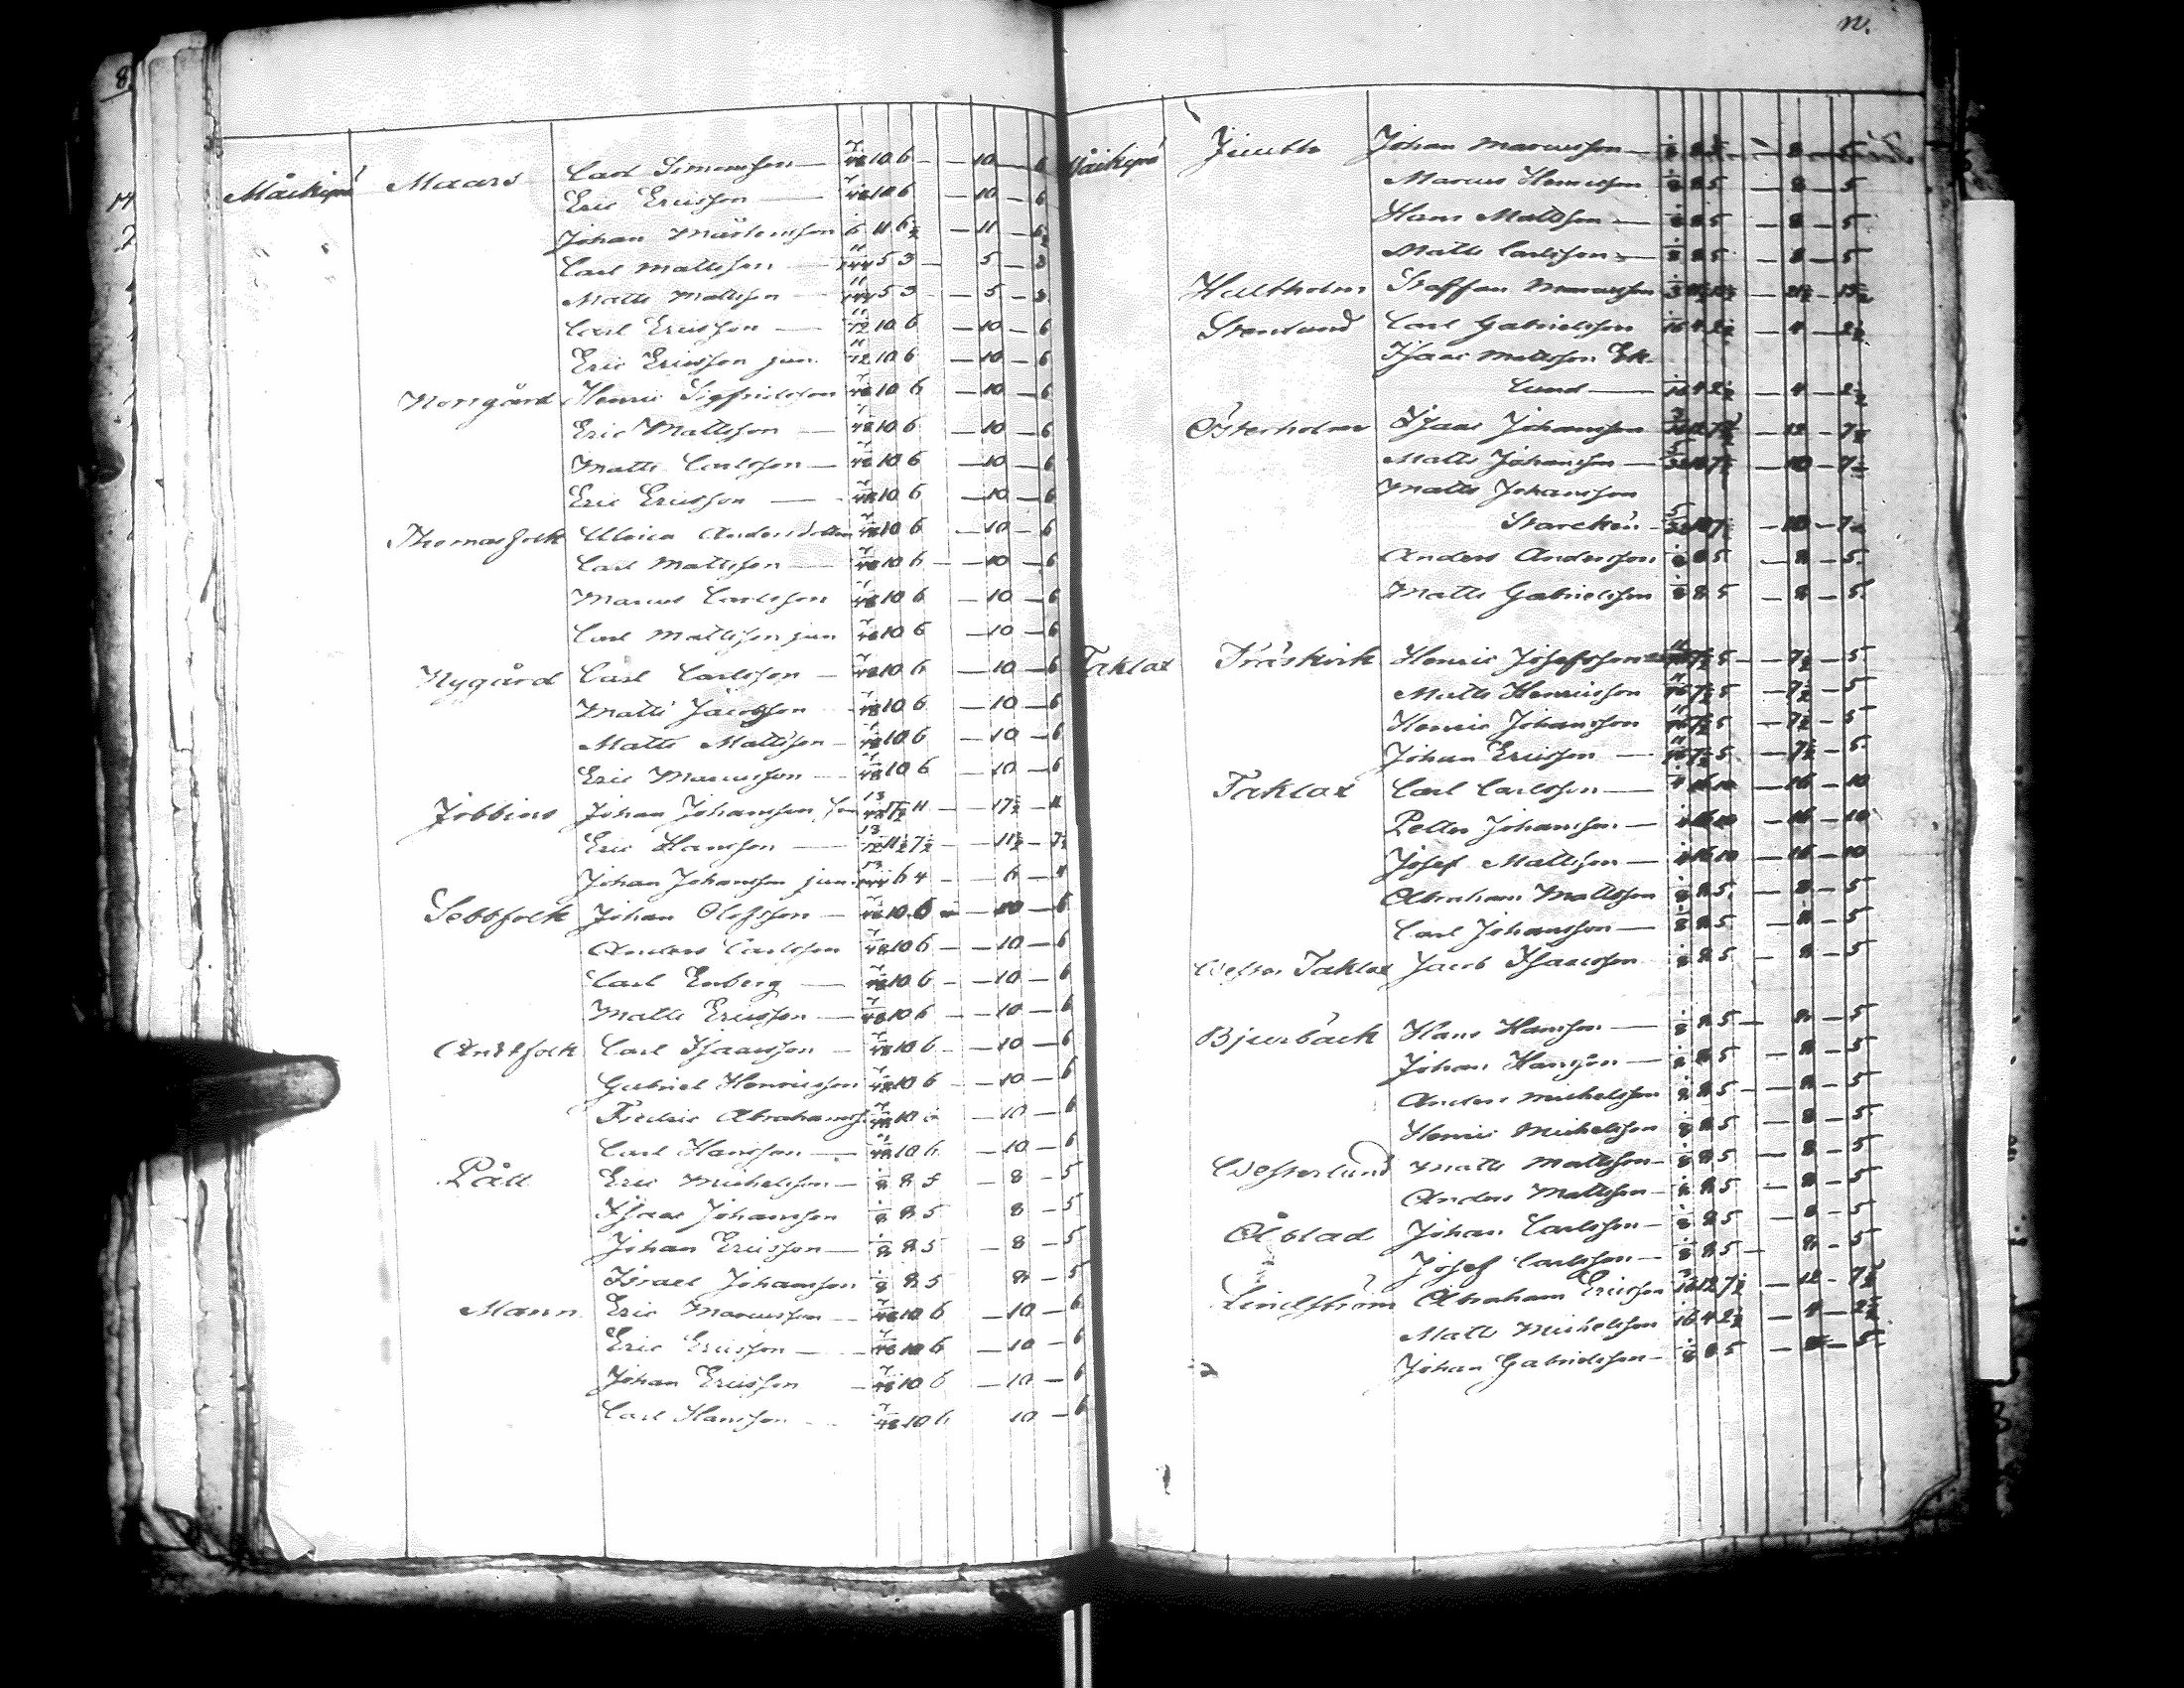 Måickipää Maars Carl Simonsson — 7/48 10 6 — 10 — 6
Eric Ericsson — 7/48 10 6 — 10 — 6
Johan Mårtensson 11 6½ — 11 — 6½
Carl Mattsson — 11/144 5 3 — 5 — 3
Matts Mattsson — 11/144 5 3 — 5 — 3
Carl Ericsson — 11/72 10 6 — 10 — 6
Eric Ericsson jun. 11/72 10 6 — 10 — 6
Norrgård Henric Sigfridsson 7/48 10 6 — 10 — 6
Eric Mattsson — 7/48 10 6 — 10 — 6
Matts Carlsson — 7/48 10 6 — 10 — 6
Eric Ericsson — 7/48 10 6 — 10 — 6
Thomasfolk Ulrica Andersdotter 7/48 10 6 — 10 — 6
Carl Mattsson — 7/48 10 6 — 10 — 6
Marcus Carlsson 7/48 10 6 — 10 — 6
Carl Mattsson jun 7/48 10 6 — 10 — 6
Nygård Carl Carlsson — 7/48 10 6 — 10 — 6
Matts Jacobsson 7/48 10 6 — 10 — 6
Matts Mattsson — 7/48 10 6 — 10 — 6
Eric Marcusson — 7/48 10 6 — 10 — 6
Jobbins Johan Johansson 13/48 17½ 11 — 17½ — 11
Eric Hansson — 13/72 11½ 7½ — 11½ — 7½
Johan Johansson jun. 13/144 6 4 — 6 — 4
Sebbfolk Johan Olofsson — 7/48 10 6 — 10 — 6
Anders Carlsson 7/48 10 6 — 10 — 6
Carl Enberg — 7/48 10 6 — 10 — 6
Matts Ericsson — 7/48 10 6 — 10 — 6
Andtfolk Carl Isaacsson — 7/48 10 6 — 10 — 6
Gabriel Henricsson 7/48 10 6 — 10 — 6
Fredric Abrahamss. 7/48 10 6 — 10 — 6
Carl Hansson — 7/48 10 6 — 10 — 6
Påll Eric Michelsson — 1/8 8 5 — 8 — 5
Isaac Johansson 1/8 8 5 8 — 5
Johan Ericsson — 1/8 8 5 — 8 — 5
Israel Johansson 1/8 8 5 8 — 5
Mann Eric Marcusson — 7/48 10 6 — 10 — 6
Eric Ericsson — 7/48 10 6 — 10 — 6
Johan Ericsson — 7/48 10 6 — 10 — 6
Carl Hansson 7/48 10 6 10 — 6
Måickipää Johan Marcusson — 1/8 8 5 — 8 — 5
Marcus Henricsson 1/8 8 5 — 8 — 5
Hans Mattsson — 1/8 8 5 — 8 — 5
Matts Carlsson — 1/8 8 5 — 8 — 5
Hultholm Staffan Marcusson
Stenlund Carl Gabrielsson 1/16 4 2½ — 4 — 2½
Isaac Mattsson Ek-
lund — 1/16 4 2½ — 4 — 2½
Österholm Isaac Johansson 12 — 7½
Matts Johansson — 5/32 10 7½ — 10 — 7½
Matts Johansson
5/32 10 7½ — 10 — 7½
Anders Andersson 1/8 8 5 — 8 — 5
Matts Gabrielsson 1/8 8 5 — 8 — 5
Taklax Henric Josefsson 7½ 5 — 7½ — 5
Matts Henricsson 11/96 7½ 5 — 7½ — 5
Henric Johansson 11/96 7½ 5 — 7½ — 5
Johan Ericsson — 11/96 7½ 5 — 7½ — 5
Taklax Carl Carlsson — 1/4 16 10 — 16 — 10
Petter Johansson — 1/4 16 10 — 16 — 10
Josef Mattsson — 1/4 16 10 — 16 — 10
Abraham Mattsson 1/8 8 5 — 8 — 5
Carl Johansson — 1/8 8 5 — 8 — 5
Wester Taklax Jacob Isaacsson 1/8 8 5 — 8 — 5
Bjurbäck Hans Hansson — 1/8 8 5 — 8 — 5
Johan Hansson — 1/8 8 5 — 8 — 5
Anders Michelsson 1/8 8 5 — 8 — 5
Henric Michelsson 1/8 8 5 — 8 — 5
Westerlund Matts Mattsson — 1/8 8 5 — 8 — 5
Anders Mattsson — 1/8 8 5 — 8 — 5
Ålstad Johan Carlsson — 1/8 8 5 — 8 — 5
Josef Carlsson — 1/8 8 5 — 8 — 5
Lindström Abraham Ericsson 3/16 12 7½ — 12 — 7½
Matts Michelsson 1/16 4 2½ — 4 — 2½
Johan Gabrielsson — 1/8 8 5 — 8 — 5